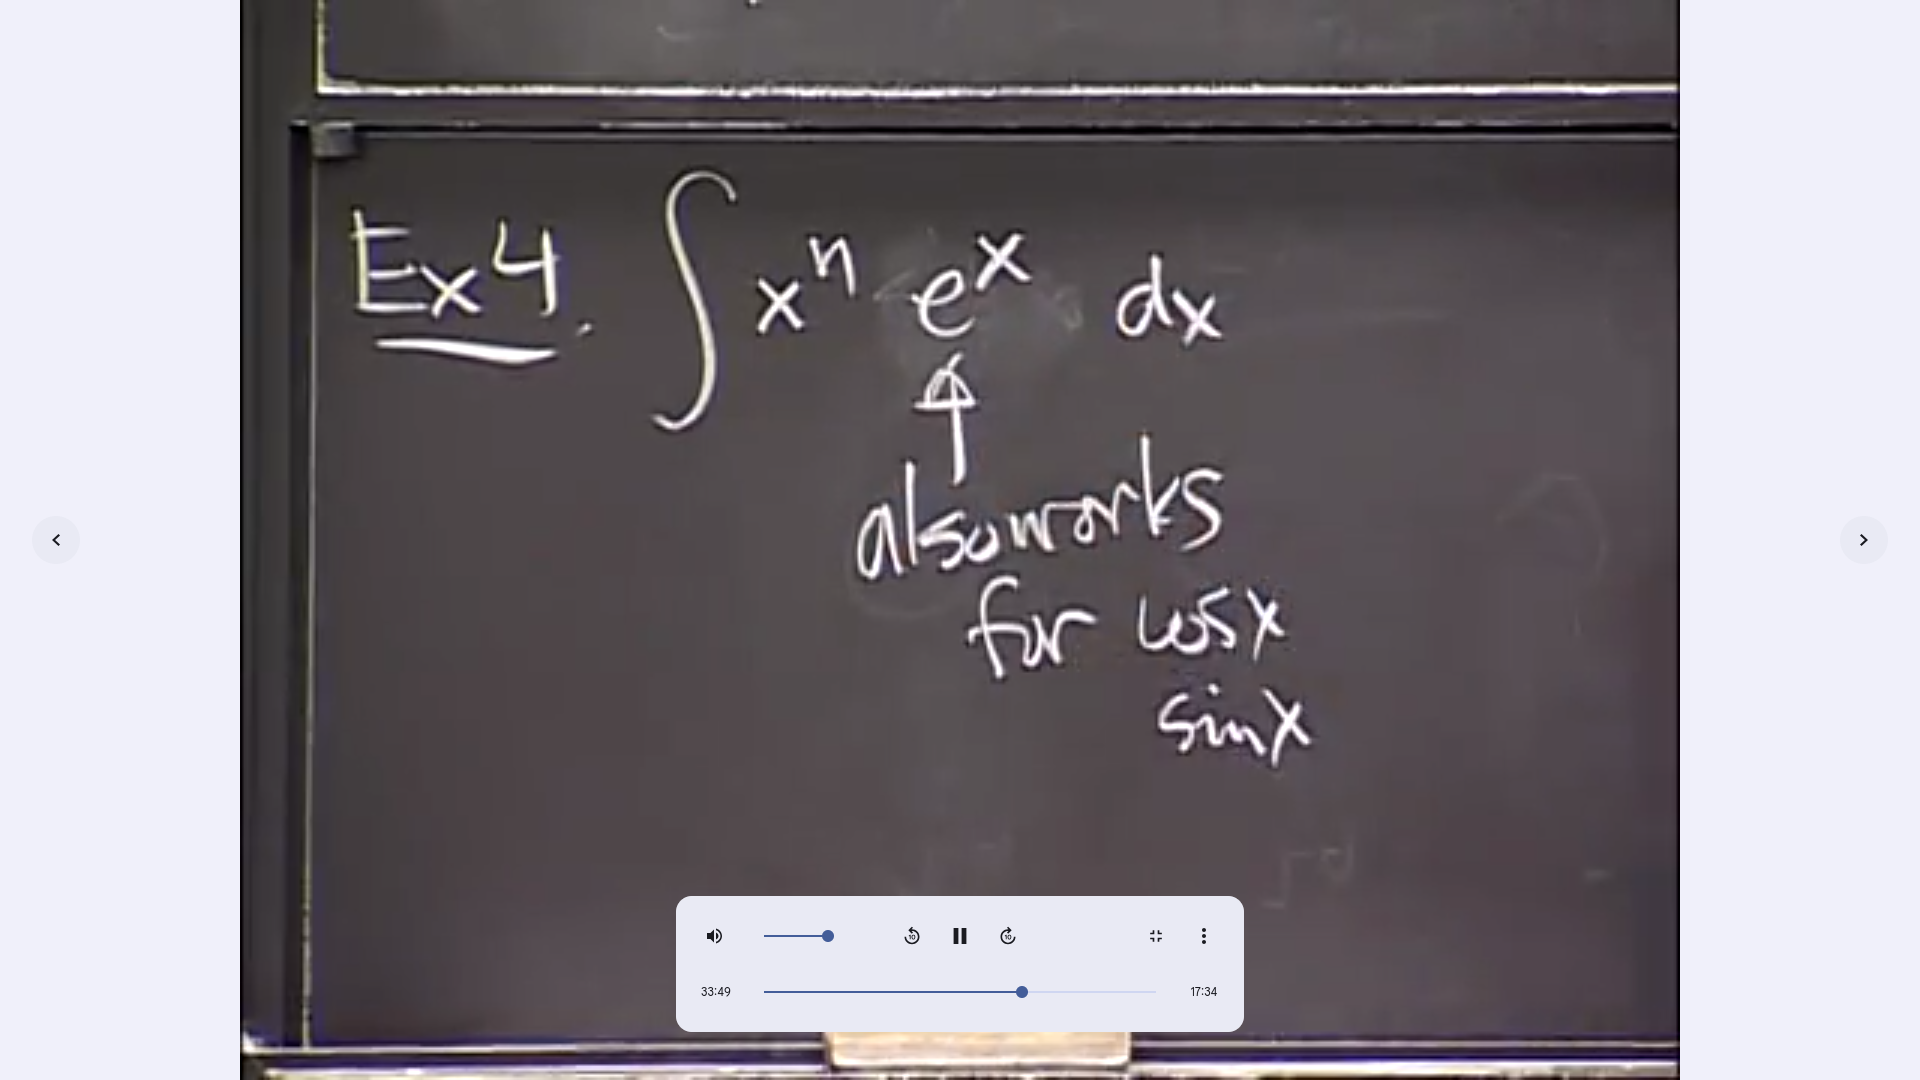 Ex 4. ∫ xⁿ eˣ dx
also works
for cos x
sin x
33:49
17:34